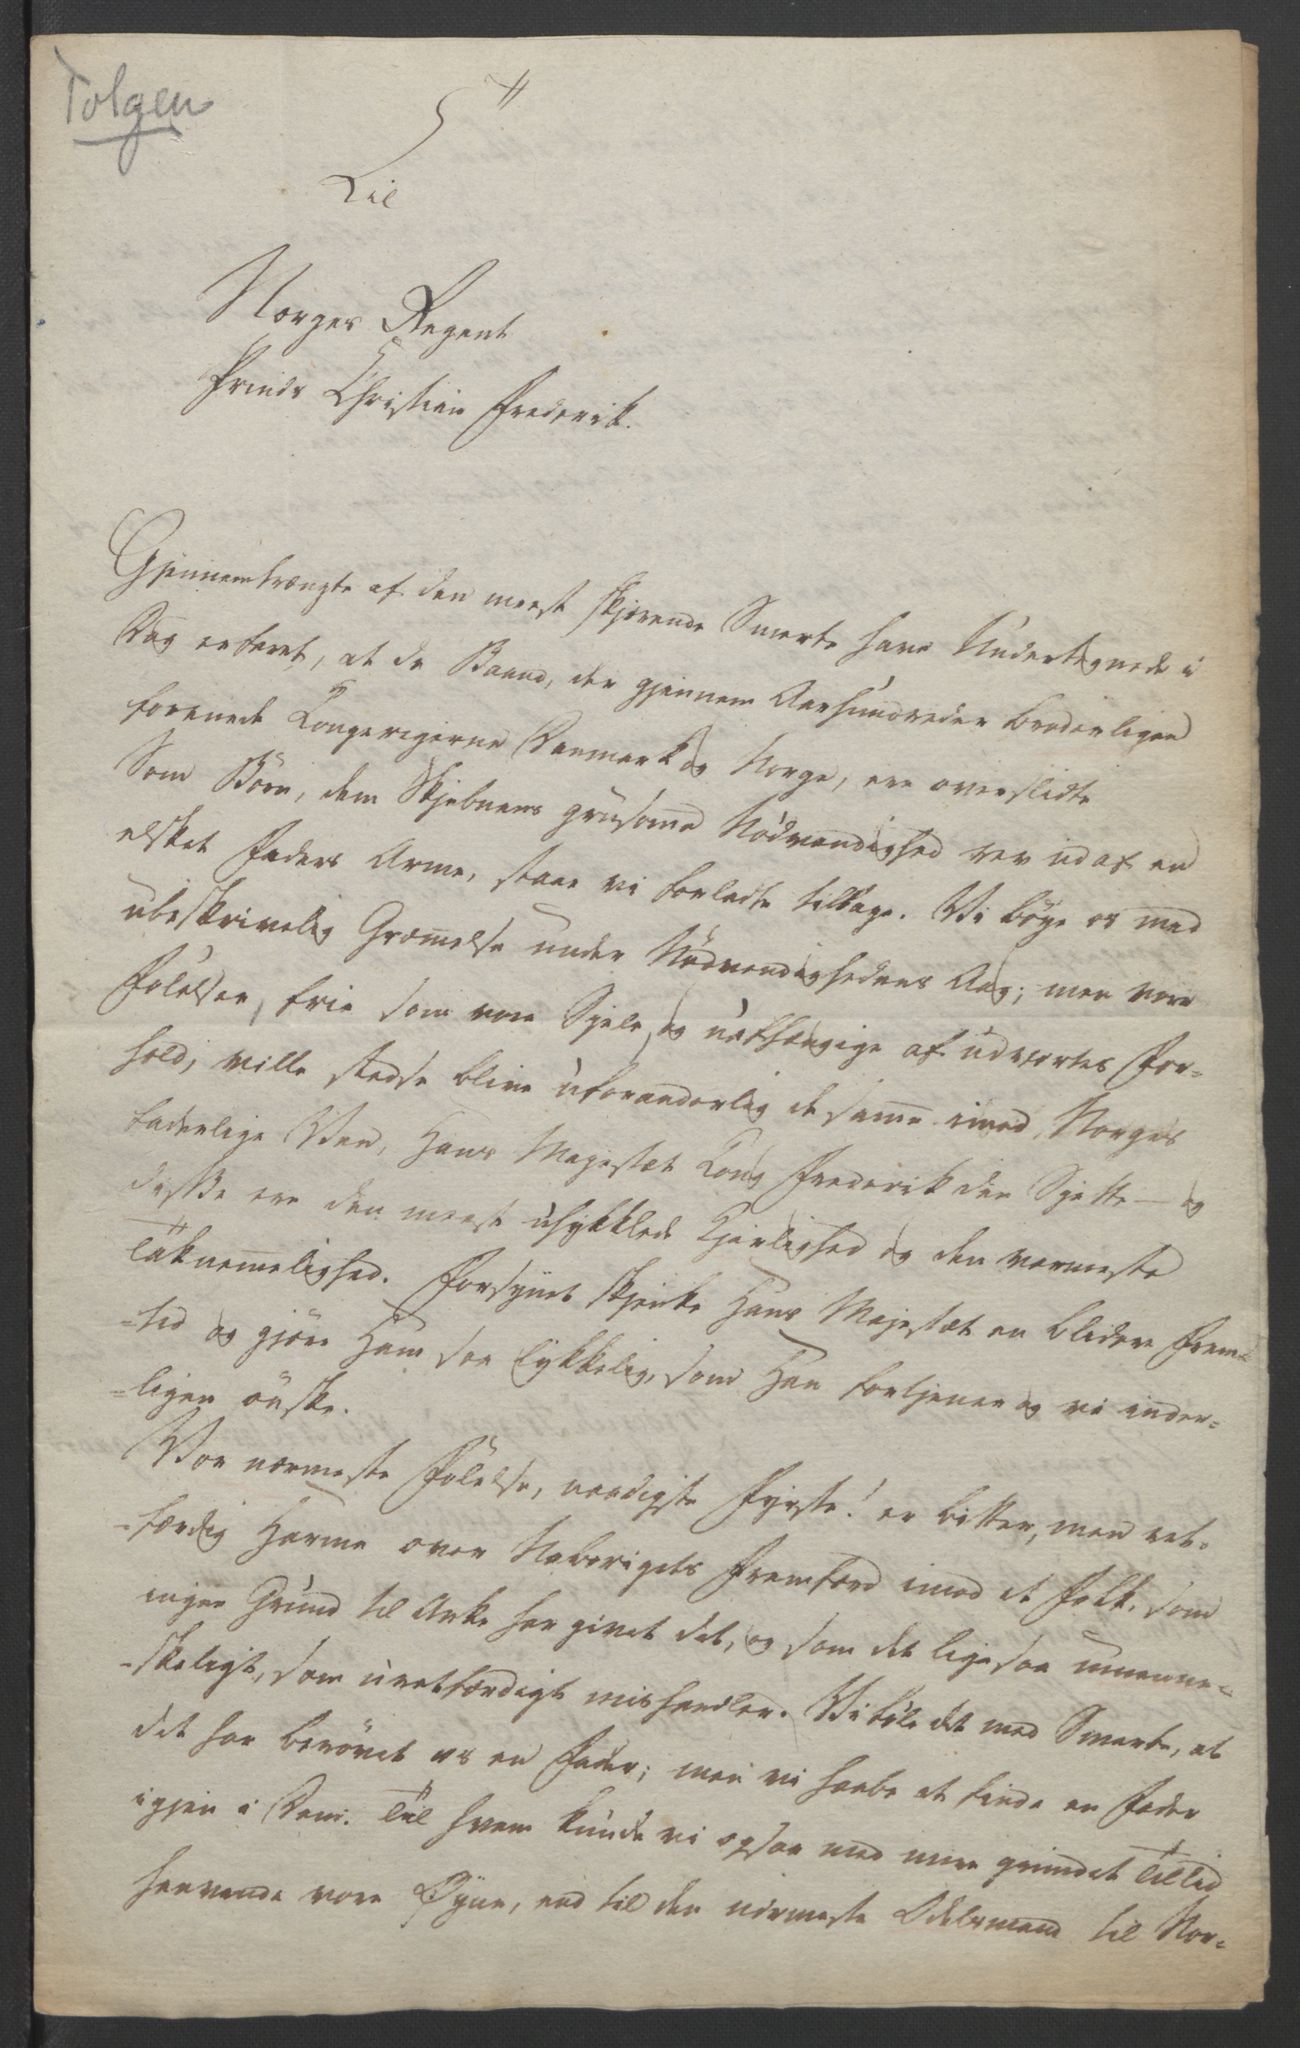 Tolgen
5
Til
Norges Regent
Prinds Christian Frederik.
Gjennemtrængte af den meest skjærende Smerte have Undertegnede i
Dag erfaret, at de Baand, der gjennem Aarhundreder broderligen
forenede Kongerigerne Danmark og Norge, ere overslidte
Som Börn, dem Skjebnens grusomme Nödvendighed rev ud af en
elsket Faders Arme, staae vi forladte tilbage. Vi böye os med
ubeskrivelig Græmmelse under Nödvendighedens Aag; men vore
Fölelser, frie som vore Sjele, og uafhængige af udvortes For-
hold, ville stedse blive uforanderlig de samme imod Norges
faderlige Ven, Hans Majestæt Kong Frederik den Sjette - og
disse ere den meest uhykklede Kjerlighed og den varmeste
Taknemmelighed. Forsynet skjenke Hans Majestæt en blidere Frem-
-tid og gjöre Ham saa lykkelig, som Han fortjener og vi inder-
-ligen önske.
Vor nærmeste Fölelse, naadigste Fyrste! er bitter, men ret-
-færdig Harme over Naborigets Fremfærd imod et Folk, som
ingen Grund til Anke har givet det, og som det ligesaa umenne-
-skeligt, som uretfærdigt mishandler. Vi föle det med Smerte, at
det har berövet os en Fader; men vi haabe at finde en Fader
igjen i Dem. Til hvem kunde vi ogsaa med mere grundet Tillid
henvende vore Øyne, end til den nærmeste Odelsmand til Nor-